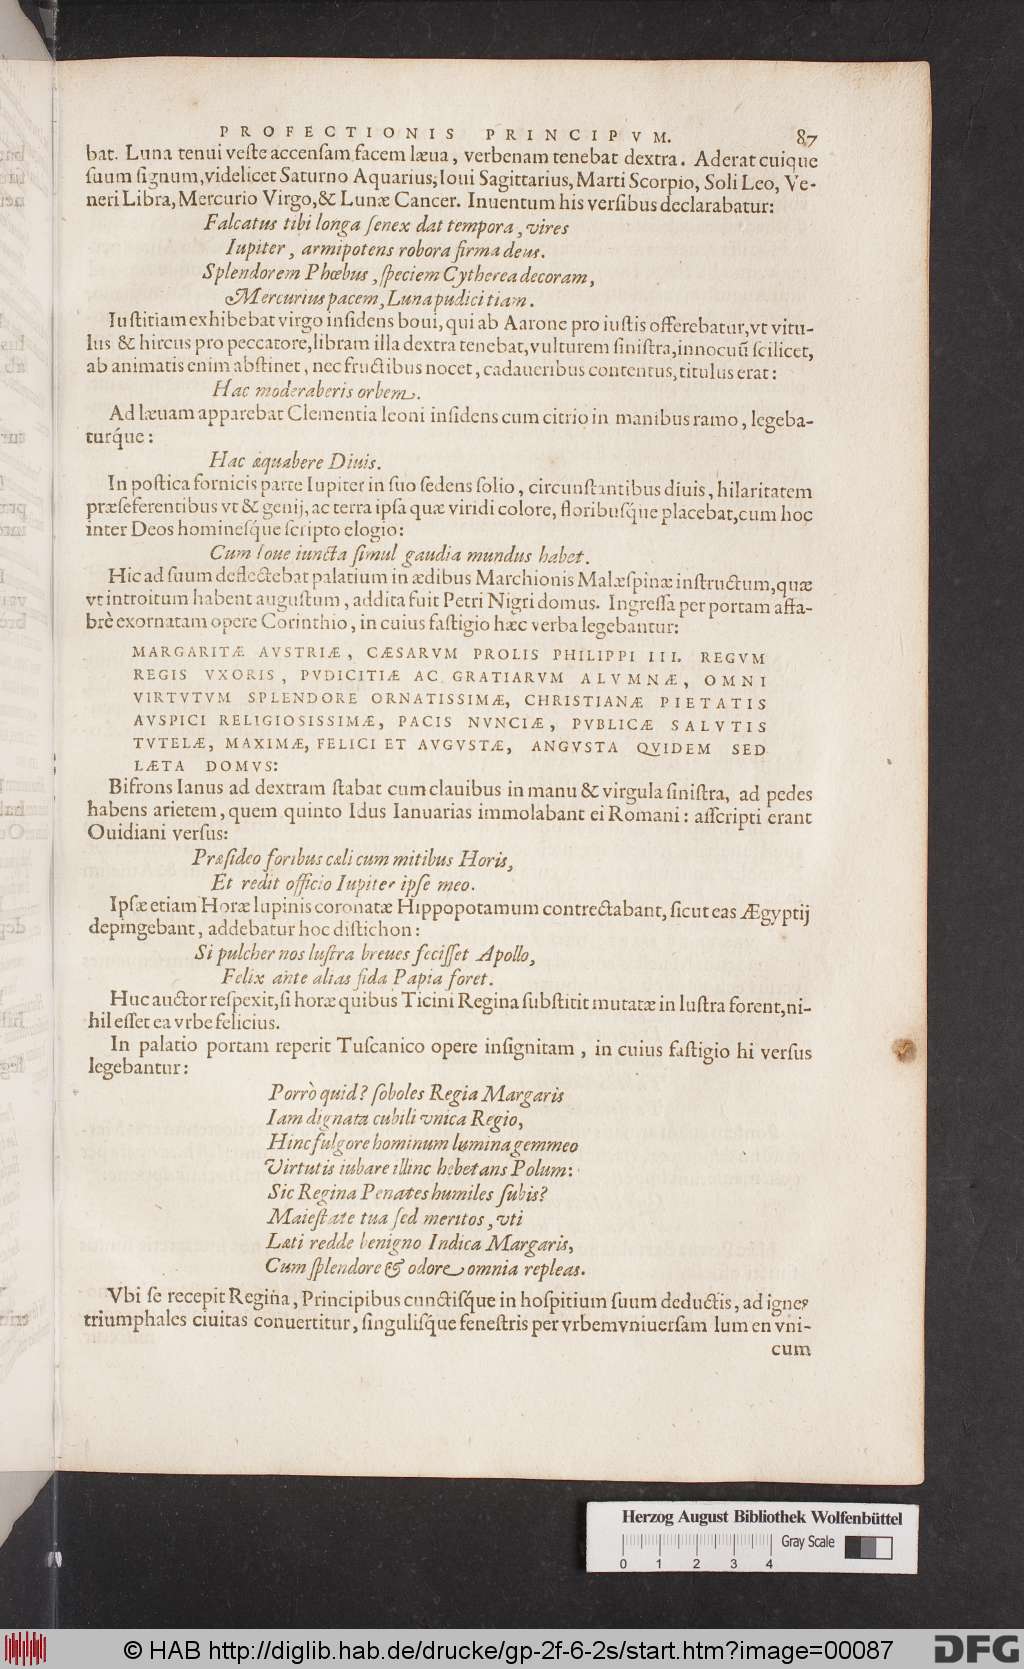 PROFECTIONIS PRINCIPVM. 87
bat. Luna tenui veſte accenſam facem læua, verbenam tenebat dextra. Aderat cuique
ſuum ſignum, videlicet Saturno Aquarius; Ioui Sagittarius, Marti Scorpio, Soli Leo, Ve-
neri Libra, Mercurio Virgo, & Lunæ Cancer. Inuentum his verſibus declarabatur:
Falcatus tibi longa ſenex dat tempora, vires
Iupiter, armipotens robora firma deus.
Splendorem Phœbus, ſpeciem Cytherea decoram,
Mercurius pacem, Luna pudicitiam.
Iuſtitiam exhibebat virgo inſidens boui, qui ab Aarone pro iuſtis offerebatur, vt vitu-
lus & hircus pro peccatore, libram illa dextra tenebat, vulturem ſiniſtra, innocuũ ſcilicet,
ab animatis enim abſtinet, nec fructibus nocet, cadaueribus contentus, titulus erat:
Hac moderaberis orbem.
Ad læuam apparebat Clementia leoni inſidens cum citrio in manibus ramo, legeba-
turq́ue:
Hac æquabere Diuis.
In poſtica fornicis parte Iupiter in ſuo ſedens ſolio, circunſtantibus diuis, hilaritatem
præſeferentibus vt & genij, ac terra ipſa quæ viridi colore, floribuſque placebat, cum hoc
inter Deos hominesq́ue ſcripto elogio:
Cum Ioue iuncta ſimul gaudia mundus habet.
Hic ad ſuum deflectebat palatium in ædibus Marchionis Malæſpinæ inſtructum, quæ
vt introitum habent auguſtum, addita fuit Petri Nigri domus. Ingreſſa per portam affa-
brè exornatam opere Corinthio, in cuius faſtigio hæc verba legebantur:
MARGARITÆ AVSTRIÆ, CÆSARVM PROLIS PHILIPPI III. REGVM
REGIS VXORIS, PVDICITIÆ AC GRATIARVM ALVMNÆ, OMNI
VIRTVTVM SPLENDORE ORNATISSIMÆ, CHRISTIANÆ PIETATIS
AVSPICI RELIGIOSISSIMÆ, PACIS NVNCIÆ, PVBLICÆ SALVTIS
TVTELÆ, MAXIMÆ, FELICI ET AVGVSTÆ, ANGVSTA QVIDEM SED
LÆTA DOMVS:
Bifrons Ianus ad dextram ſtabat cum clauibus in manu & virgula ſiniſtra, ad pedes
habens arietem, quem quinto Idus Ianuarias immolabant ei Romani: aſſcripti erant
Ouidiani verſus:
Præſideo foribus cæli cum mitibus Horis,
Et redit officio Iupiter ipſe meo.
Ipſæ etiam Horæ lupinis coronatæ Hippopotamum contrectabant, ſicut eas Ægyptij
depingebant, addebatur hoc diſtichon:
Si pulcher nos luſtra breues feciſſet Apollo,
Felix ante alias fida Papia foret.
Huc auctor reſpexit, ſi horæ quibus Ticini Regina ſubſtitit mutatæ in luſtra forent, ni-
hil eſſet ea vrbe felicius.
In palatio portam reperit Tuſcanico opere inſignitam, in cuius faſtigio hi verſus
legebantur:
Porrò quid? ſoboles Regia Margaris
Iam dignata cubili vnica Regio,
Hinc fulgore hominum lumina gemmeo
Virtutis iubare illinc hebetans Polum:
Sic Regina Penates humiles ſubis?
Maieſtate tua ſed meritos, vti
Læti redde benigno Indica Margaris,
Cum ſplendore & odore omnia repleas.
Vbi ſe recepit Regina, Principibus cunctiſq́ue in hoſpitium ſuum deductis, ad ignes
triumphales ciuitas conuertitur, ſinguliſque feneſtris per vrbem vniuerſam lumen vni-
cum
Herzog August Bibliothek Wolfenbüttel
Gray Scale
0 1 2 3 4
© HAB http://diglib.hab.de/drucke/gp-2f-6-2s/start.htm?image=00087 DFG